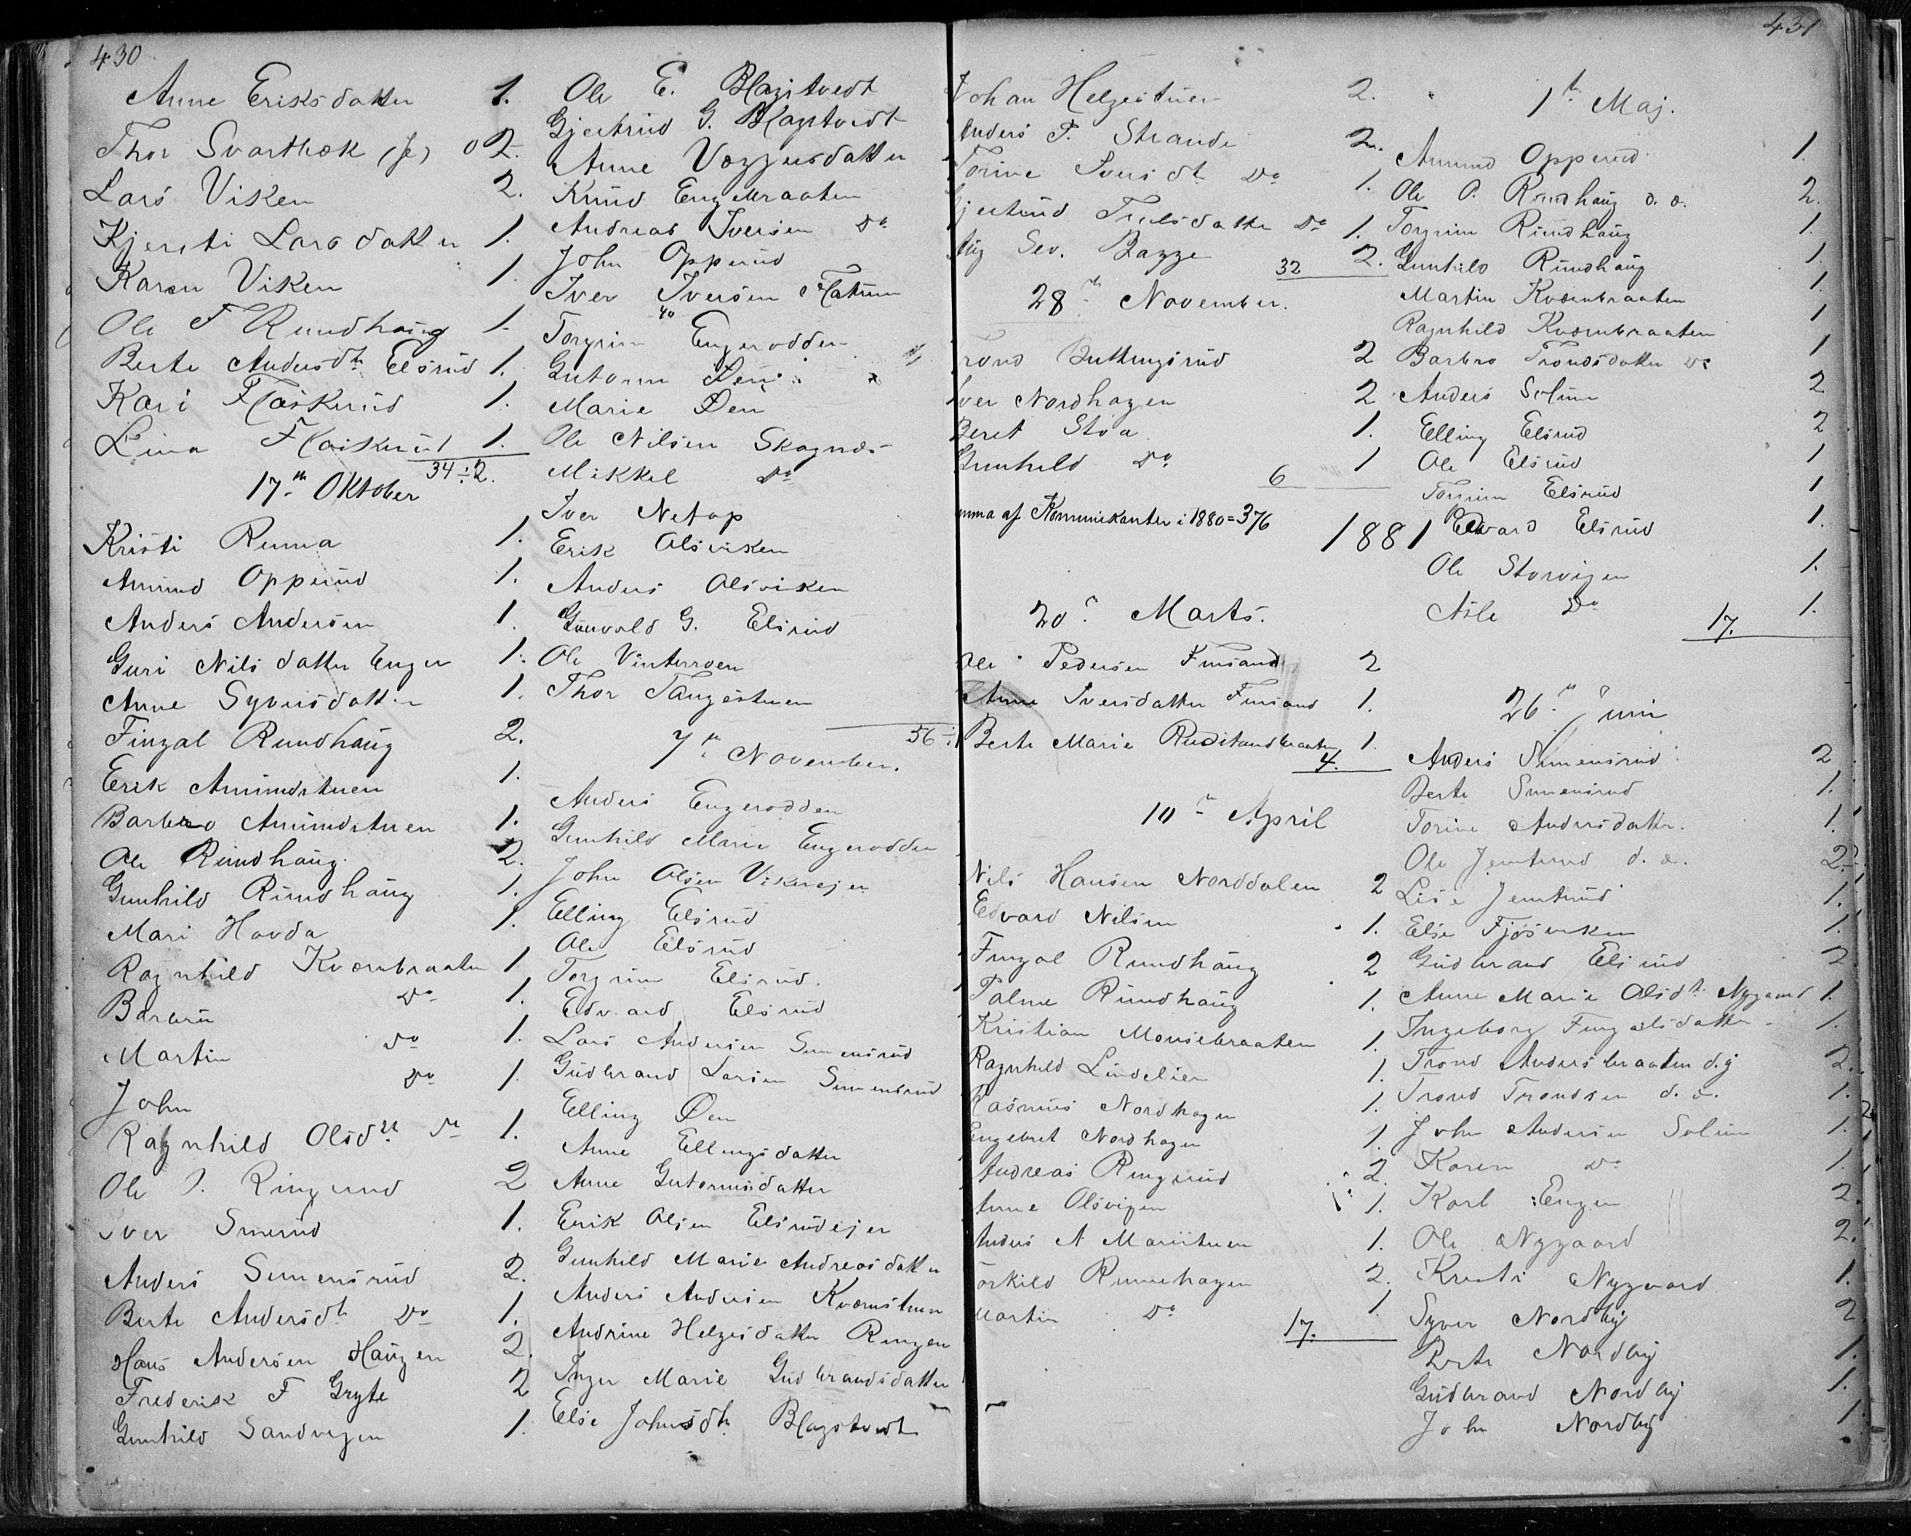 430
Anne Eriksdatter 1.
Thor Svartbæk (Je) 0 2.
Lars Viken 2.
Kjersti Larsdatter 1.
Karen Viken 1.
Ole T Rundhaug 1.
Berte Andersdtr Elsrud 1.
Kari Flaskerud 1.
Lina Flaskerud 1.
34÷2.
17de Oktober
Kristi Renna 1.
Amund Opperud 1.
Anders Andersen 1.
Guri Nilsdatter Enger 1.
Anne Syversdatter 1.
Fingal Rundhaug 2.
Erik Amundstuen 1.
Barbro Amundstuen 1.
Ole Rundhaug 2.
Gunhild Rundhaug 1.
Mari Hovda 1.
Ragnhild Kværnbraaten 1
Barbro do 1.
Martin do 1.
John do 1.
Ragnhild Olsdtr do 1.
Ole O. Ringerud 2
Iver Smerud 1.
Anders Simensrud 2.
Berte Andersdtr do 1.
Hans Andersen Haugen 2.
Frederik F Gryte 2
Gunhild Sandvigen 1.
Ole E. Blagstvedt
Gjertrud G. Blagstvedt
Anne Væggersdatter
Knud Engebraaten
Andreas Iversen do
John Opperud
Iver Iversen Flatum
40
Torgrim Engerodden
Gutorm Øen
Marie Øen
Ole Nilsen Skagnæs
Mikkel do
Iver Netop
Erik Olsviken
Anders Olsviken
Gunvald G. Elsrud
Ole Vinterroen
Thor Tangestuen
56
7de November.
Anders Engerodden
Gunhild Marie Engerodden
John Olsen Vikerejer
Elling Elsrud
Ole Elsrud
Torgrim Elsrud.
Edvard Elsrud
Lars Andersen Simensrud
Gudbrand Larsen Simensrud
Elling Øen
Anne Ellingsdatter
Anne Gutormsdatter
Erik Olsen Elsrudejer
Gunhild Marie Andreasdatter
Anders Andersen Kværnstuen
Andrine Helgesdatter Ringen
Inger Marie Gudbrandsdatter
Else Johnsdtr Blagstvedt
431
Johan Helgestuen 2.
Anders P. Strande 2.
Torine Iversdtr do 1.
Gjertrud Trulsdatter do 1.
Sev. Bagge 2.
32
28de November.
Trond Buttingsrud 2
Iver Nordhagen 2
Beret Stoa 1.
Gunhild do 1
6
Summa af Kommunikanter i 1880=376
1881
20de Marts.
Ole Pedersen Finsand 2
Anne Iversdatter Finsand 1.
Berte Marie Rustandbraaten 1.
4.
10de April
Nils Hansen Norddalen 2
Edvard Nilsen 1.
Fingal Rundhaug 2
Palme Rundhaug 1.
Kristian Monsebraaten 1.
Ragnhild Lindelien 1.
Rasmus Nordhagen 1.
Engebret Nordhagen 1.
Andreas Ringerud 2.
Anne Olsvigen 1.
Anders A Moristuen 1.
Torkild Rennehagen 2.
Martin do 1
17.
1ste Maj.
Amund Opperud 1.
Ole O. Rundhaug d. æ. 2.
Torgrim Rundhaug 1.
Gunhild Rundhaug 1.
Martin Kværnbraaten 1
Ragnhild Kværnbraaten 1
Barbro Trondsdatter do 1
Anders Solum 2
Elling Elsrud 2
Ole Elsrud 1
Torgrim Elsrud 1
Edvard Elsrud 1.
Ole Storvigen 1.
Asle do 1.
17.
26de Juni
Anders Simensrud 2
Berte Simensrud 1.
Torine Andersdatter. 1.
Ole Jemterud d. æ. 2.
Lise Jemterud 1.
Else Fjøsviken 1.
Gudbrand Elsrud 2
Anne Marie Olsdtr Nygaard 1.
Ingeborg Fingalsdatter 1.
Trond Andersbraaten d.y 2.
Trond Trondsen d. æ. 1.
John Andersen Solum 1.
Karen do 1.
Karl Engen 2.
Ole Nygaard 2.
Kristi Nygaard 1.
Syver Nordby 2.
Berte Nordby 1.
Gudbrand Nordby 1.
John Nordby 1.